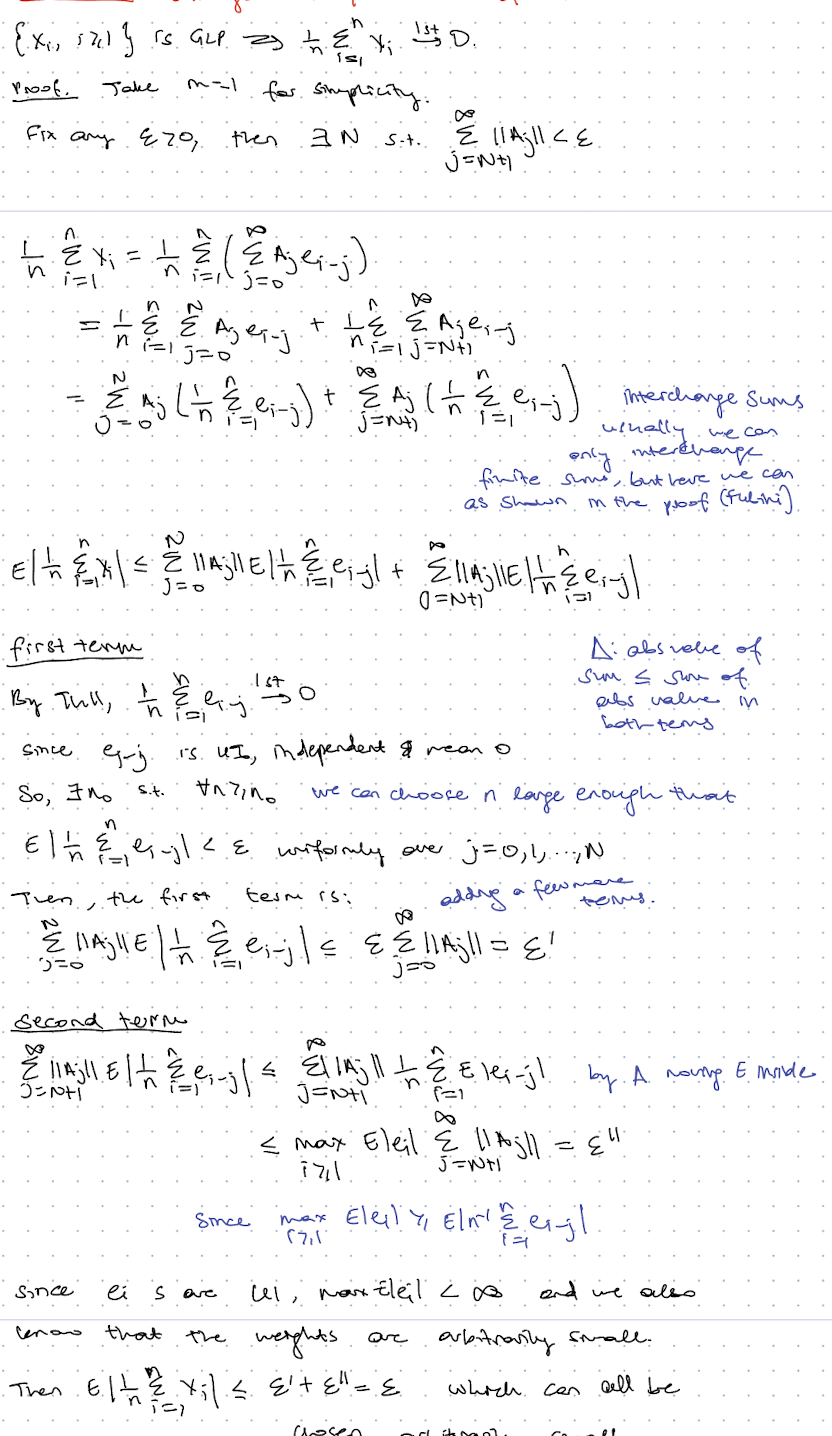 {X_i, i≥1} is GLP ⇒ 1/n Σ_{i=1}^n X_i →^{1st} 0.
Proof. Take m=1 for simplicity.
Fix any ε>0, then ∃N s.t. Σ_{j=N+1}^∞ ||A_j|| < ε
1/n Σ_{i=1}^n X_i = 1/n Σ_{i=1}^n (Σ_{j=0}^∞ A_j e_{i-j})
= 1/n Σ_{i=1}^n Σ_{j=0}^N A_j e_{i-j} + 1/n Σ_{i=1}^n Σ_{j=N+1}^∞ A_j e_{i-j}
= Σ_{j=0}^N A_j (1/n Σ_{i=1}^n e_{i-j}) + Σ_{j=N+1}^∞ A_j (1/n Σ_{i=1}^n e_{i-j})
interchange sums
usually we can
only interchange
finite sums, but here we can
as shown in the proof (Fubini)
E|1/n Σ_{i=1}^n X_i| ≤ Σ_{j=0}^N ||A_j|| E|1/n Σ_{i=1}^n e_{i-j}| + Σ_{j=N+1}^∞ ||A_j|| E|1/n Σ_{i=1}^n e_{i-j}|
Δ: abs value of
sum ≤ sum of
abs value in
both terms
first term
By TWLL, 1/n Σ_{i=1}^n e_{i-j} →^{1st} 0
since e_{i-j} is UI, independent & mean 0
So, ∃n_0 s.t. ∀n≥n_0 we can choose n large enough that
E|1/n Σ_{i=1}^n e_{i-j}| < ε uniformly over j=0,1,...,N
Then, the first term is: adding a few more
terms.
Σ_{j=0}^N ||A_j|| E|1/n Σ_{i=1}^n e_{i-j}| ≤ ε Σ_{j=0}^∞ ||A_j|| = ε'
second term
Σ_{j=N+1}^∞ ||A_j|| E|1/n Σ_{i=1}^n e_{i-j}| ≤ Σ_{j=N+1}^∞ ||A_j|| 1/n Σ_{i=1}^n E|e_{i-j}| by Δ moving E inside
≤ max_{i≥1} E|e_i| Σ_{j=N+1}^∞ ||A_j|| = ε''
Since max_{i≥1} E|e_i| ≥ E|n^{-1} Σ_{i=1}^n e_{i-j}|
since e_i s are UI, max E|e_i| < ∞ and we also
know that the weights are arbitrarily small.
Then E|1/n Σ_{i=1}^n X_i| ≤ ε' + ε'' = ε which can all be